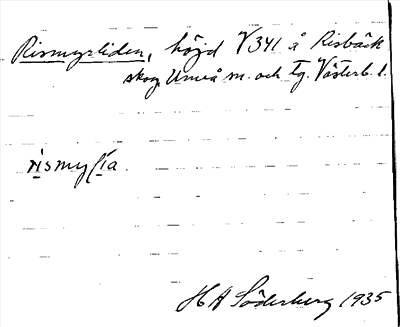 Rismyrliden, höjd V341 å Risbäck
skog, Umeå m. och tg. Västerb. l.
rismyʃľia
H A Söderberg 1935